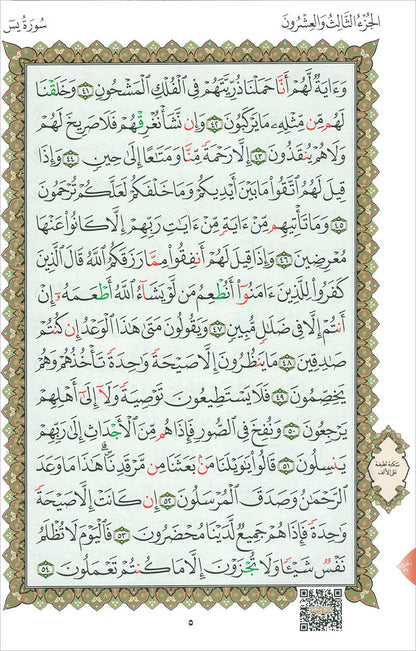 الجُزْءُ الثَّالِثُ وَالعِشْرُونَ
سُورَةُ يسٓ
وَءَايَةٌ لَّهُمْ أَنَّا حَمَلْنَا ذُرِّيَّتَهُمْ فِي ٱلْفُلْكِ ٱلْمَشْحُونِ ٤١ وَخَلَقْنَا
لَهُم مِّن مِّثْلِهِۦ مَا يَرْكَبُونَ ٤٢ وَإِن نَّشَأْ نُغْرِقْهُمْ فَلَا صَرِيخَ لَهُمْ
وَلَا هُمْ يُنقَذُونَ ٤٣ إِلَّا رَحْمَةً مِّنَّا وَمَتَٰعًا إِلَىٰ حِينٍ ٤٤ وَإِذَا
قِيلَ لَهُمُ ٱتَّقُوا۟ مَا بَيْنَ أَيْدِيكُمْ وَمَا خَلْفَكُمْ لَعَلَّكُمْ تُرْحَمُونَ
٤٥ وَمَا تَأْتِيهِم مِّنْ ءَايَةٍ مِّنْ ءَايَٰتِ رَبِّهِمْ إِلَّا كَانُوا۟ عَنْهَا
مُعْرِضِينَ ٤٦ وَإِذَا قِيلَ لَهُمْ أَنفِقُوا۟ مِمَّا رَزَقَكُمُ ٱللَّهُ قَالَ ٱلَّذِينَ
كَفَرُوا۟ لِلَّذِينَ ءَامَنُوٓا۟ أَنُطْعِمُ مَن لَّوْ يَشَآءُ ٱللَّهُ أَطْعَمَهُۥٓ إِنْ
أَنتُمْ إِلَّا فِي ضَلَٰلٍ مُّبِينٍ ٤٧ وَيَقُولُونَ مَتَىٰ هَٰذَا ٱلْوَعْدُ إِن كُنتُمْ
صَٰدِقِينَ ٤٨ مَا يَنظُرُونَ إِلَّا صَيْحَةً وَٰحِدَةً تَأْخُذُهُمْ وَهُمْ
يَخِصِّمُونَ ٤٩ فَلَا يَسْتَطِيعُونَ تَوْصِيَةً وَلَآ إِلَىٰٓ أَهْلِهِمْ
يَرْجِعُونَ ٥٠ وَنُفِخَ فِي ٱلصُّورِ فَإِذَا هُم مِّنَ ٱلْأَجْدَاثِ إِلَىٰ رَبِّهِمْ
يَنسِلُونَ ٥١ قَالُوا۟ يَٰوَيْلَنَا مَنۢ بَعَثَنَا مِن مَّرْقَدِنَا ۜ هَٰذَا مَا وَعَدَ
ٱلرَّحْمَٰنُ وَصَدَقَ ٱلْمُرْسَلُونَ ٥٢ إِن كَانَتْ إِلَّا صَيْحَةً
وَٰحِدَةً فَإِذَا هُمْ جَمِيعٌ لَّدَيْنَا مُحْضَرُونَ ٥٣ فَٱلْيَوْمَ لَا تُظْلَمُ
نَفْسٌ شَيْـًٔا وَلَا تُجْزَوْنَ إِلَّا مَا كُنتُمْ تَعْمَلُونَ ٥٤
سكتة لطيفة
على الألف
٥